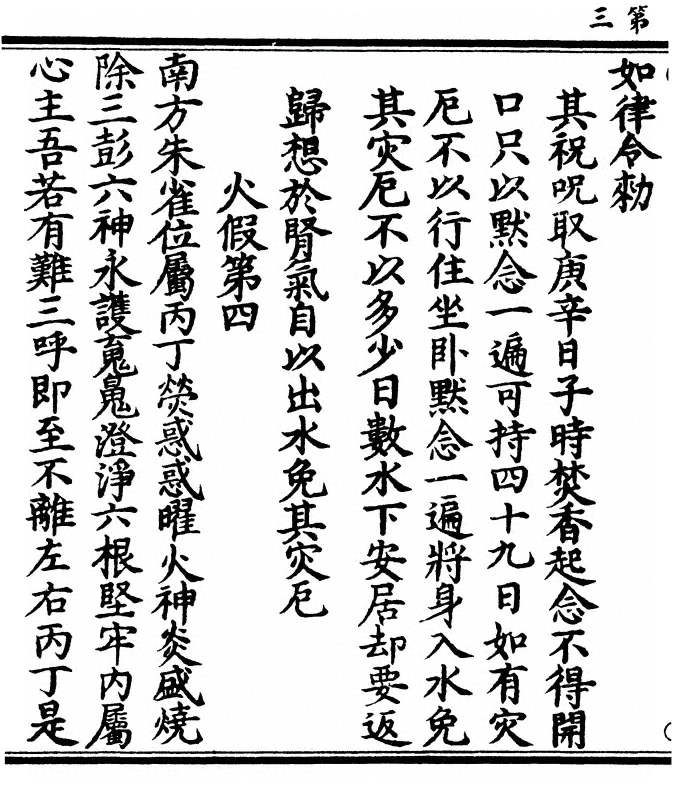 第三
如律令勑
其祝呪取庚辛日子時焚香起念不得開
口只以默念一遍可持四十九日如有灾
厄不以行住坐卧默念一遍將身入水免
其灾厄不以多少日數水下安居却要返
歸想於腎氣自以出水免其灾厄
火假第四
南方朱雀位屬丙丁熒惑惑曜火神炎盛燒
除三彭六神永護䰟鬼澄淨六根堅牢内屬
心主吾若有難三呼即至不離左右丙丁是